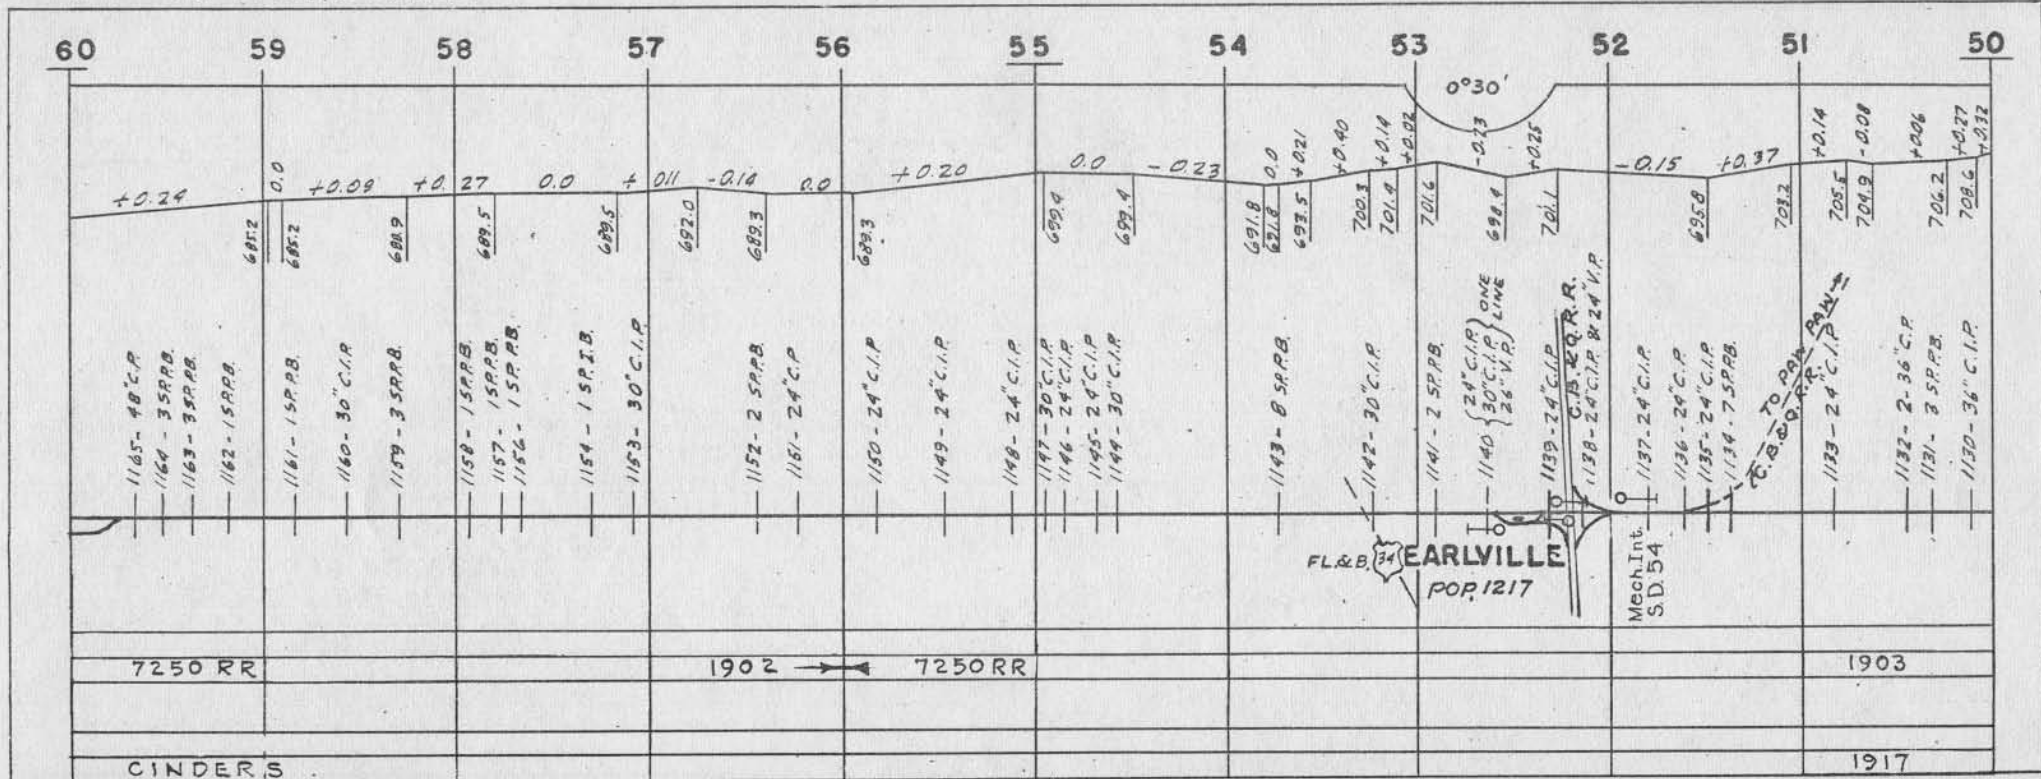 60 59 58 57 56 55 54 53 52 51 50
0°30'
+0.24 0.0 +0.09 +0.27 0.0 + 011 -0.14 0.0 +0.20 0.0 -0.23 0.0 +0.21 +0.40 +0.14 +0.02 -0.23 +0.25 -0.15 +0.37 +0.14 -0.08 +0.06 +0.27 +0.32
685.2 685.2 689.5 689.5 692.0 689.3 689.3 699.4 699.4 691.8 693.5 700.3 701.4 701.6 698.4 701.1 695.8 703.2 705.5 704.9 706.2 708.6
1165- 48"C.P.
1164 - 3 S.P.P.B.
1163- 3 S.P.P.B.
1162- 1 S.P.P.B.
1161- 1 S.P.P.B.
1160- 30"C.I.P.
1159- 3 S.P.P.B.
1158- 1 S.P.P.B.
1157- 1 S.P.P.B.
1156- 1 S.P.P.B.
1154- 1 S.P.I.B.
1153- 30"C.I.P.
1152- 2 S.P.P.B.
1151- 24"C.P.
1150- 24"C.I.P.
1149- 24"C.I.P.
1148- 24"C.I.P.
1147- 30"C.I.P.
1146- 24"C.I.P.
1145- 24"C.I.P.
1144- 30"C.I.P.
1143- 8 S.P.P.B.
1142- 30"C.I.P.
1141- 2 S.P.P.B.
1140 {24"C.I.P. 30"C.I.P. 26"V.P.} ONE LINE
1139- 24"C.I.P.
C.B.&Q.R.R.
1138- 24"C.I.P. & 24"V.P.
1137- 24"C.I.P.
1136- 24"C.P.
1135- 24"C.I.P.
1134- 7 S.P.P.B.
C.B.&Q.R.R.
TO PAW PAW
1133- 24"C.I.P.
1132- 2-36"C.P.
1131- 3 S.P.P.B.
1130- 36"C.I.P.
FL.&B. 34 EARLVILLE
POP. 1217
Mech. Int.
S.D. 54
7250 RR 1902 7250 RR 1903
CINDERS 1917